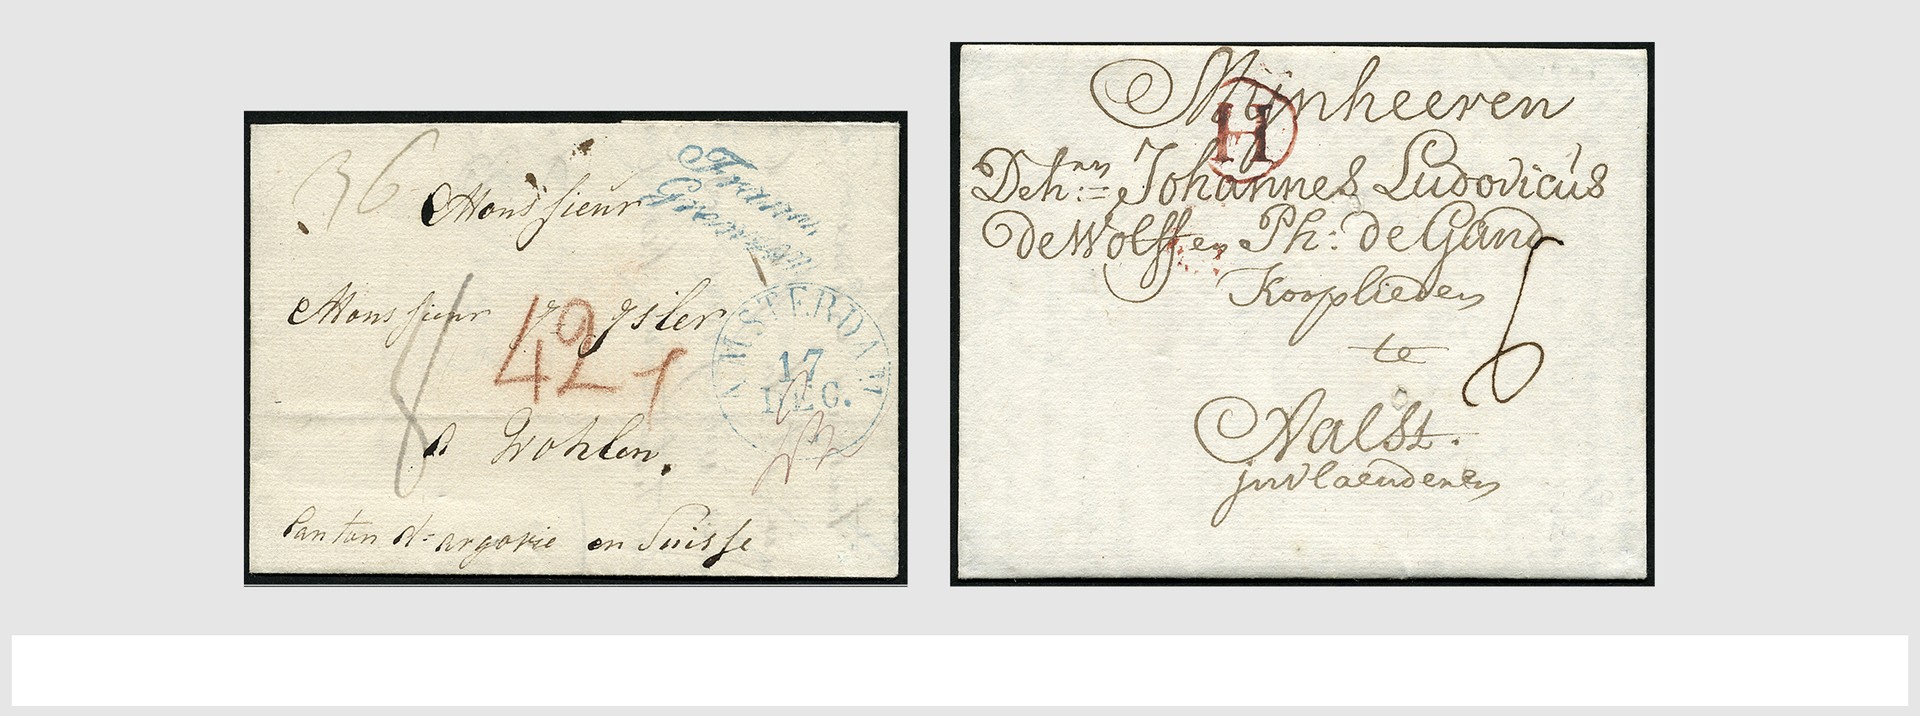 36
Monsieur
Franco
Grenzen
Monssieur
ysler
42
AMSTERDAM
17
DEC.
8
a Wohlen.
Canton d=argovie en Suisse
Mijnheeren
H
Deh:ren= Johannes Ludovicus
de Wolff en Ph: de Gand
Kooplieden
6
te
Aalst.
in vlaenderen